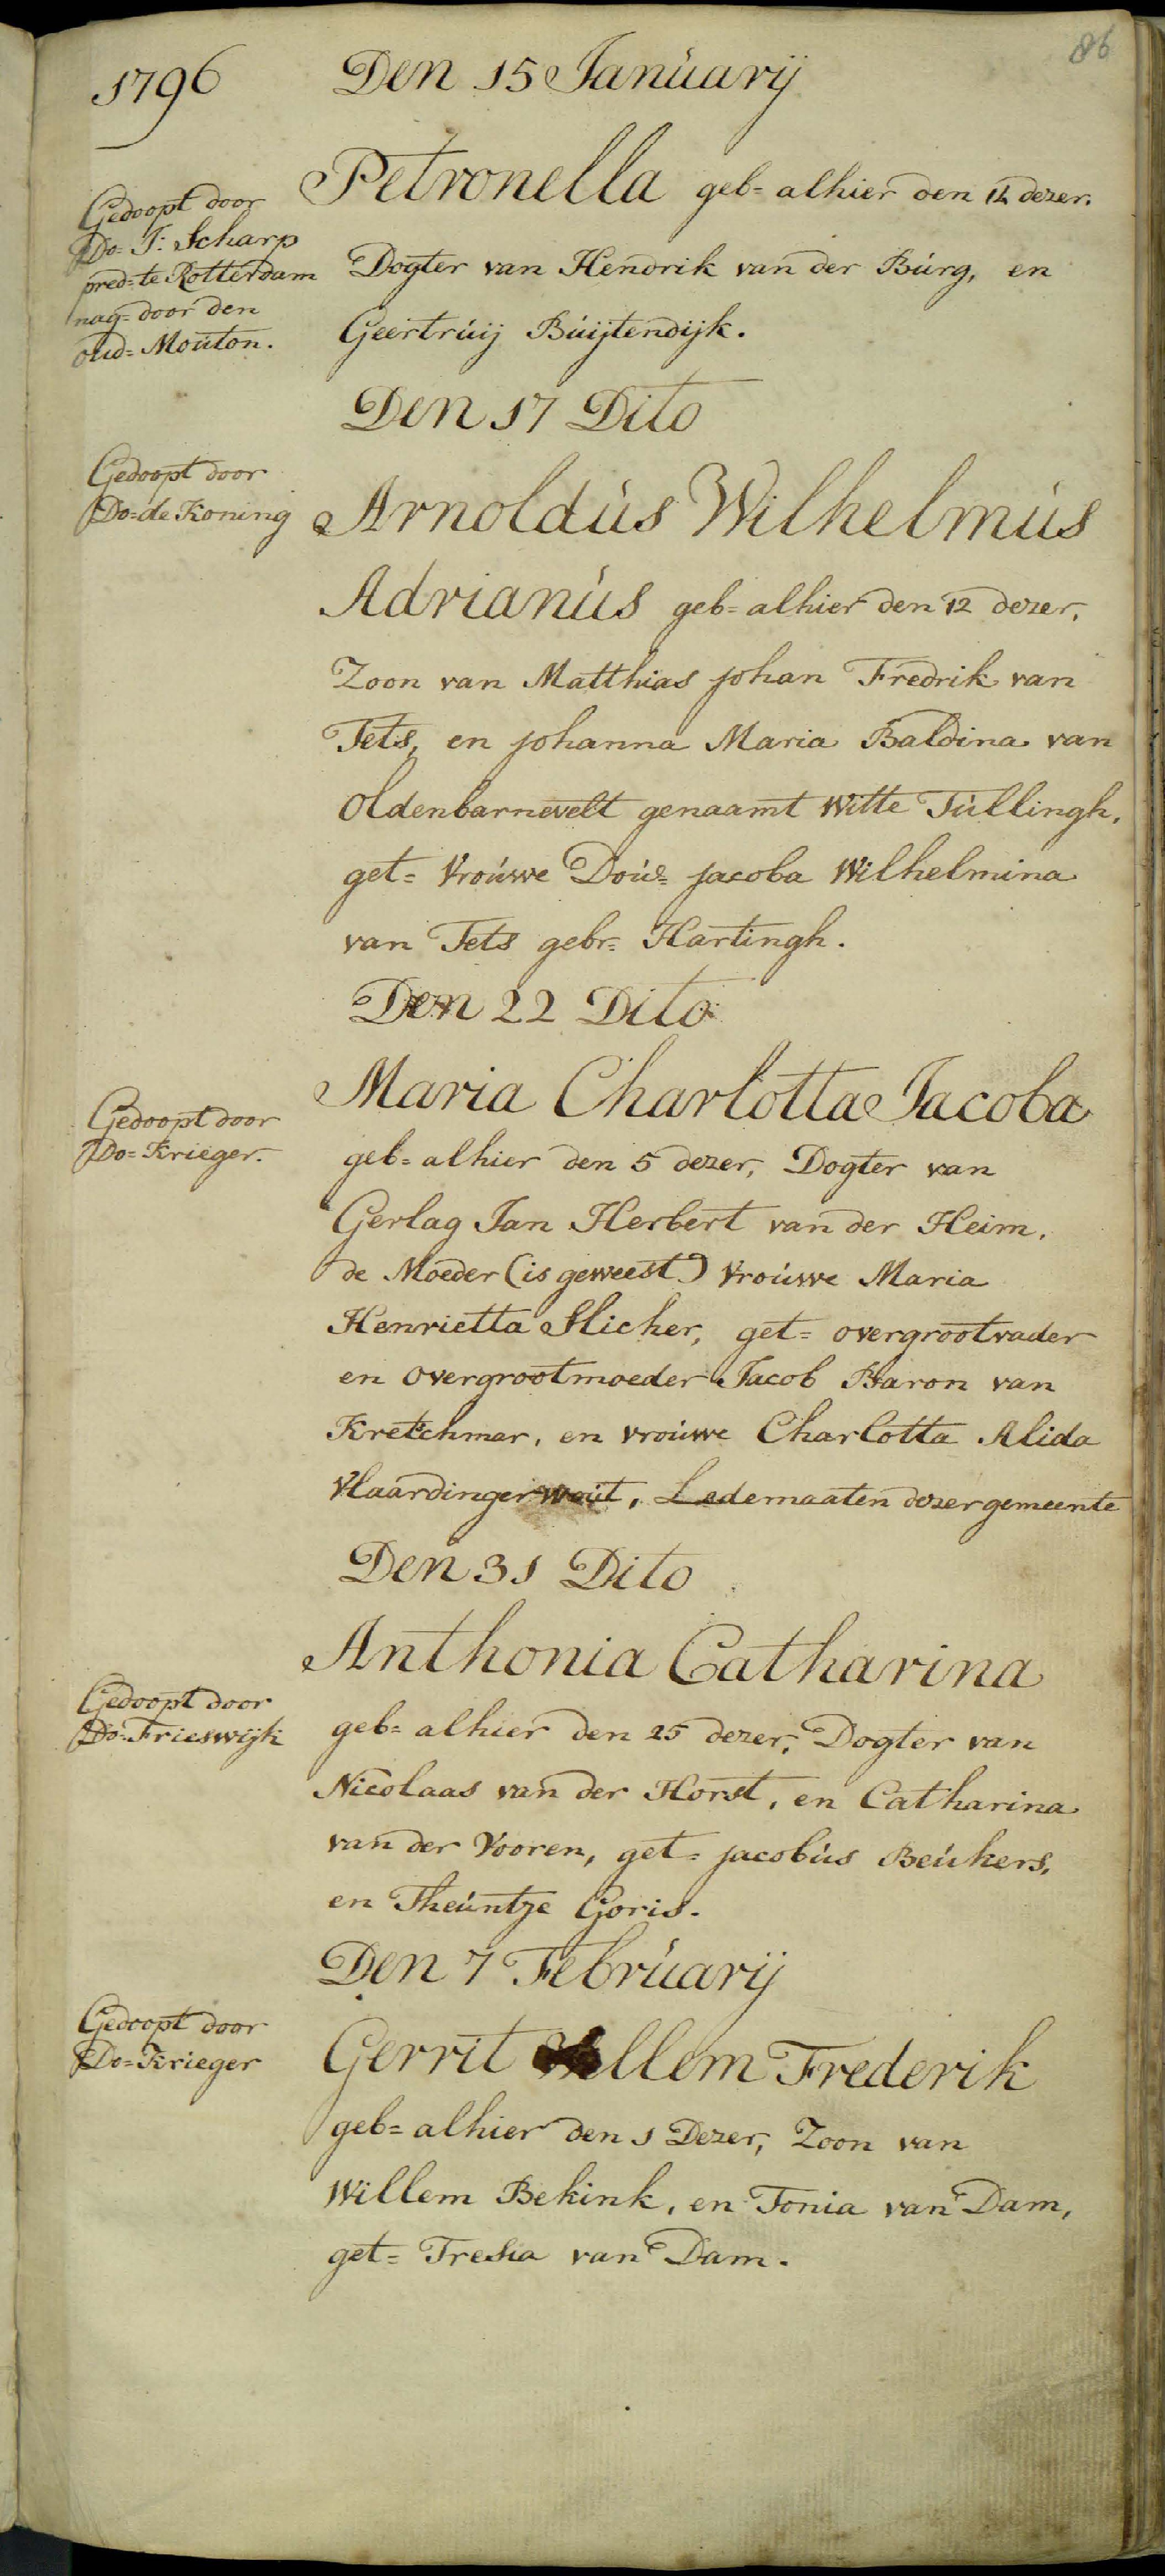 86
1796
Den 15 Januarij
Gedoopt door
Do= J: Scharp
pred=te Rotterdam
nag= door den
oud= Mouton.
Petronella geb= alhier den 14 dezer.
Dogter van Hendrik van der Burg, en
Geertruij Buijtendijk.
Den 17 Dito
Gedoopt door
Do= de Koning
Arnoldus Wilhelmus
Adrianus geb= alhier den 12 dezer,
Zoon van Matthias johan Fredrik van
Tets, en johanna Maria Baldina van
Oldenbarnevelt genaamt Witte Tullingh,
get= Vrouwe Dou= jacoba Wilhelmina
van Tets gebr= Hartingh.
Den 22 Dito
Gedoopt door
Do= Krieger.
Maria Charlotta Jacoba
geb= alhier den 5 dezer, Dogter van
Gerlag Jan Herbert van der Heim,
de Moeder (is geweest) Vrouwe Maria
Henrietta Slicher, get= overgrootvader
en overgrootmoeder Jacob Baron van
Kretchmar, en vrouwe Charlotta Alida
Vlaardingerwout, Ledemaaten dezer gemeente
Den 31 Dito
Gedoopt door
Do= Frieswijk
Anthonia Catharina
geb= alhier den 25 dezer, Dogter van
Nicolaas van der Horst, en Catharina
van der Vooren, get= jacobus Beukers,
en Theuntje Goris.
Den 7 Februarij
Gedoopt door
Do= Krieger
Gerrit Willem Frederik
geb= alhier den 1 Dezer, Zoon van
Willem Bekink, en Tonia van Dam,
get= Tresia van Dam.